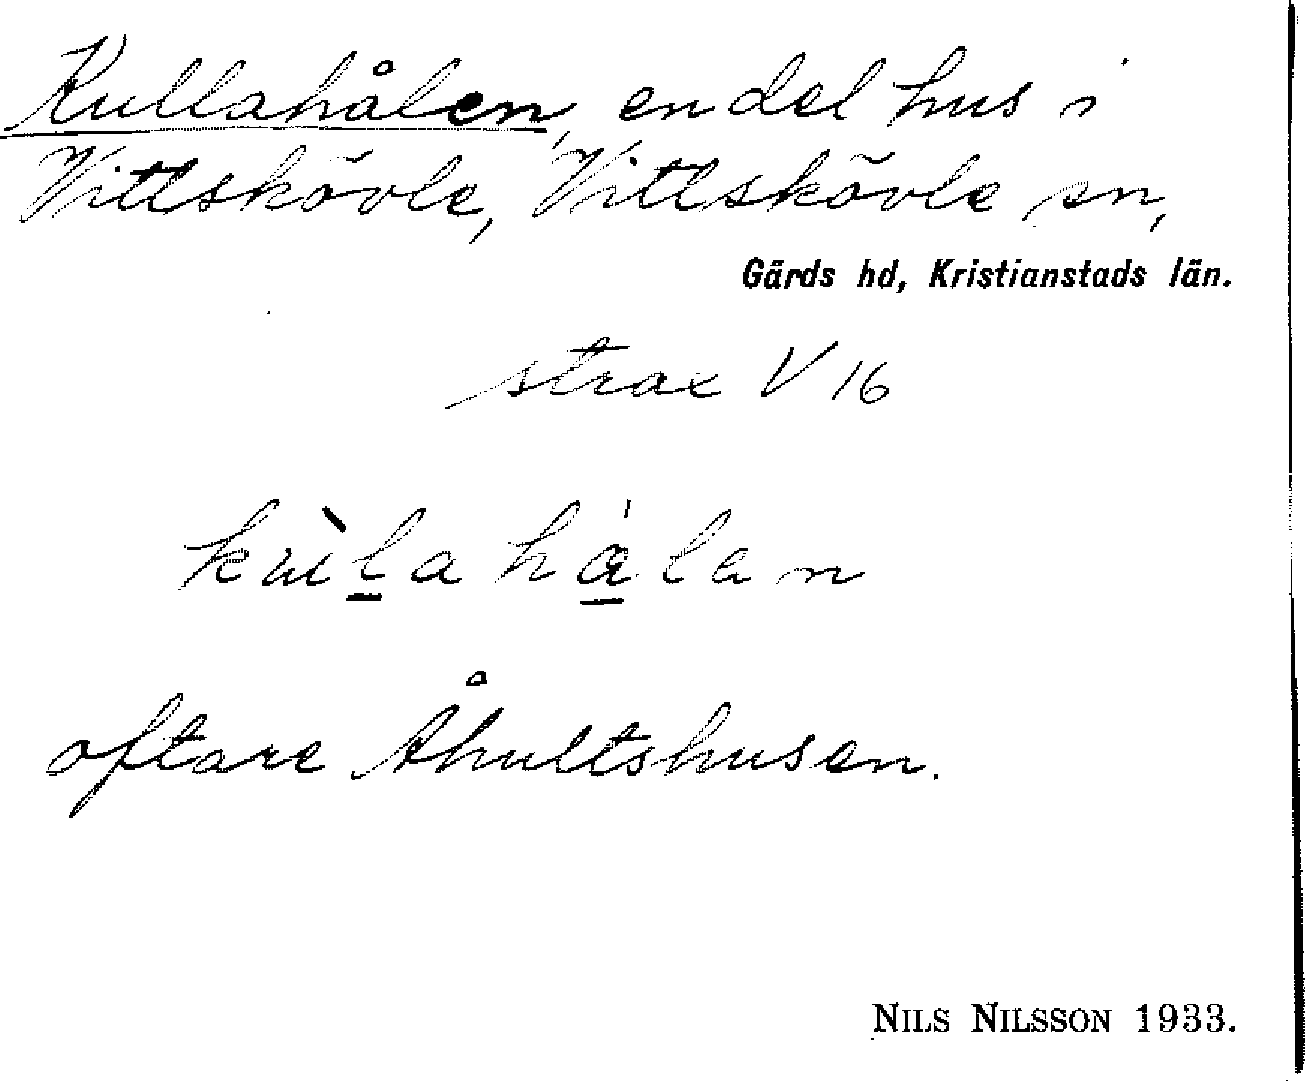 Kullahålen, en del hus i
Vittskövle, Vittskövle sn,
Gärds hd, Kristianstads län.
strax V 16
kùl̲a há̲lan
oftare Åhultshusen.
NILS NILSSON 1933.